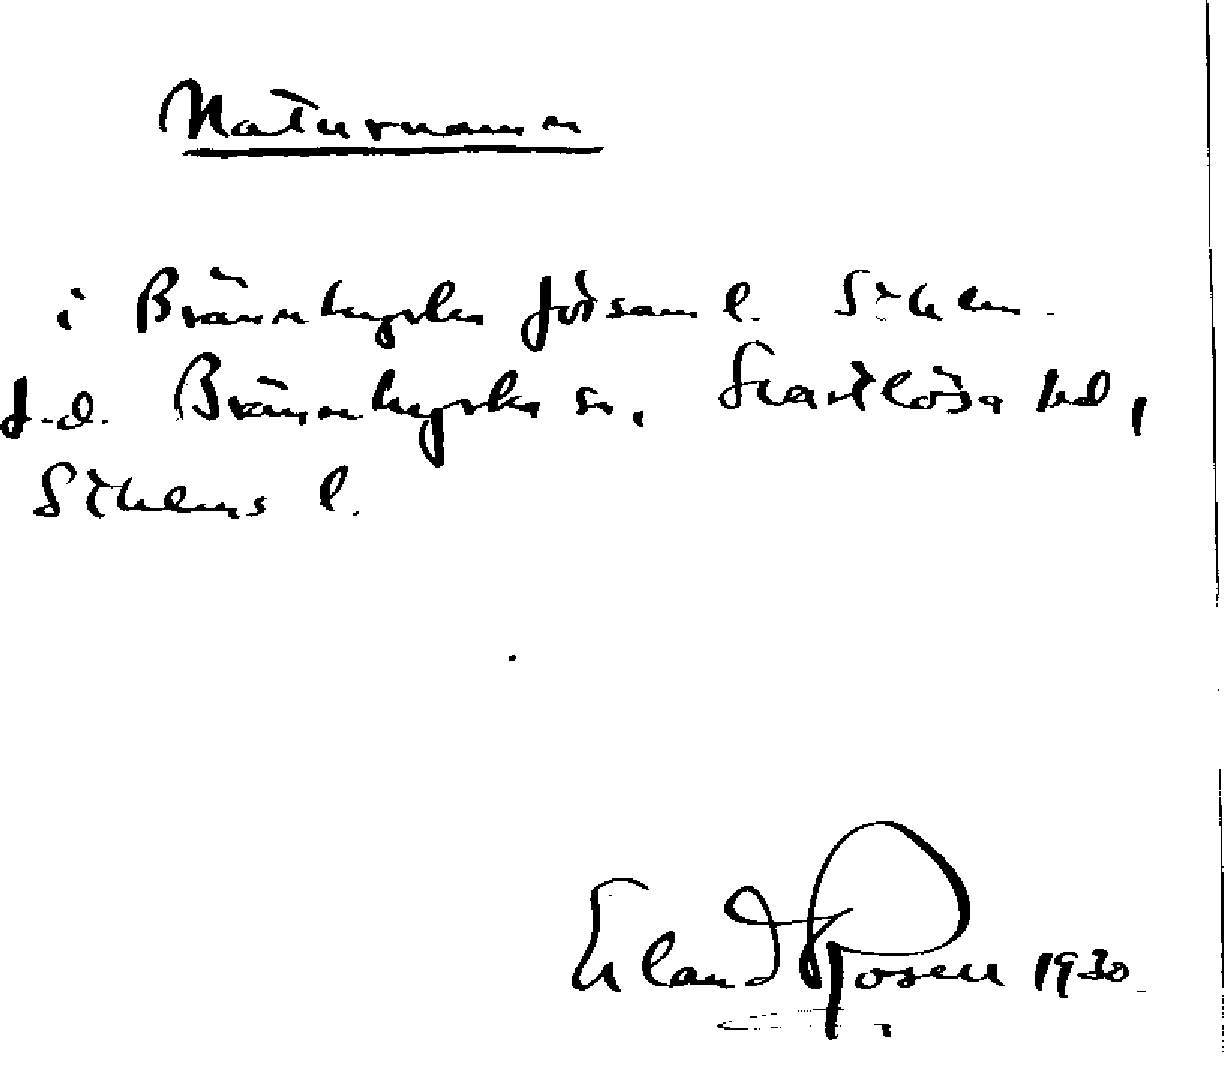 Naturnamn
i Brännkyrka förs:aml. Sthlm.
f.d. Brännkyrka sn, Svartlösa hd,
Sthlms l.
Erland Rosell 1930